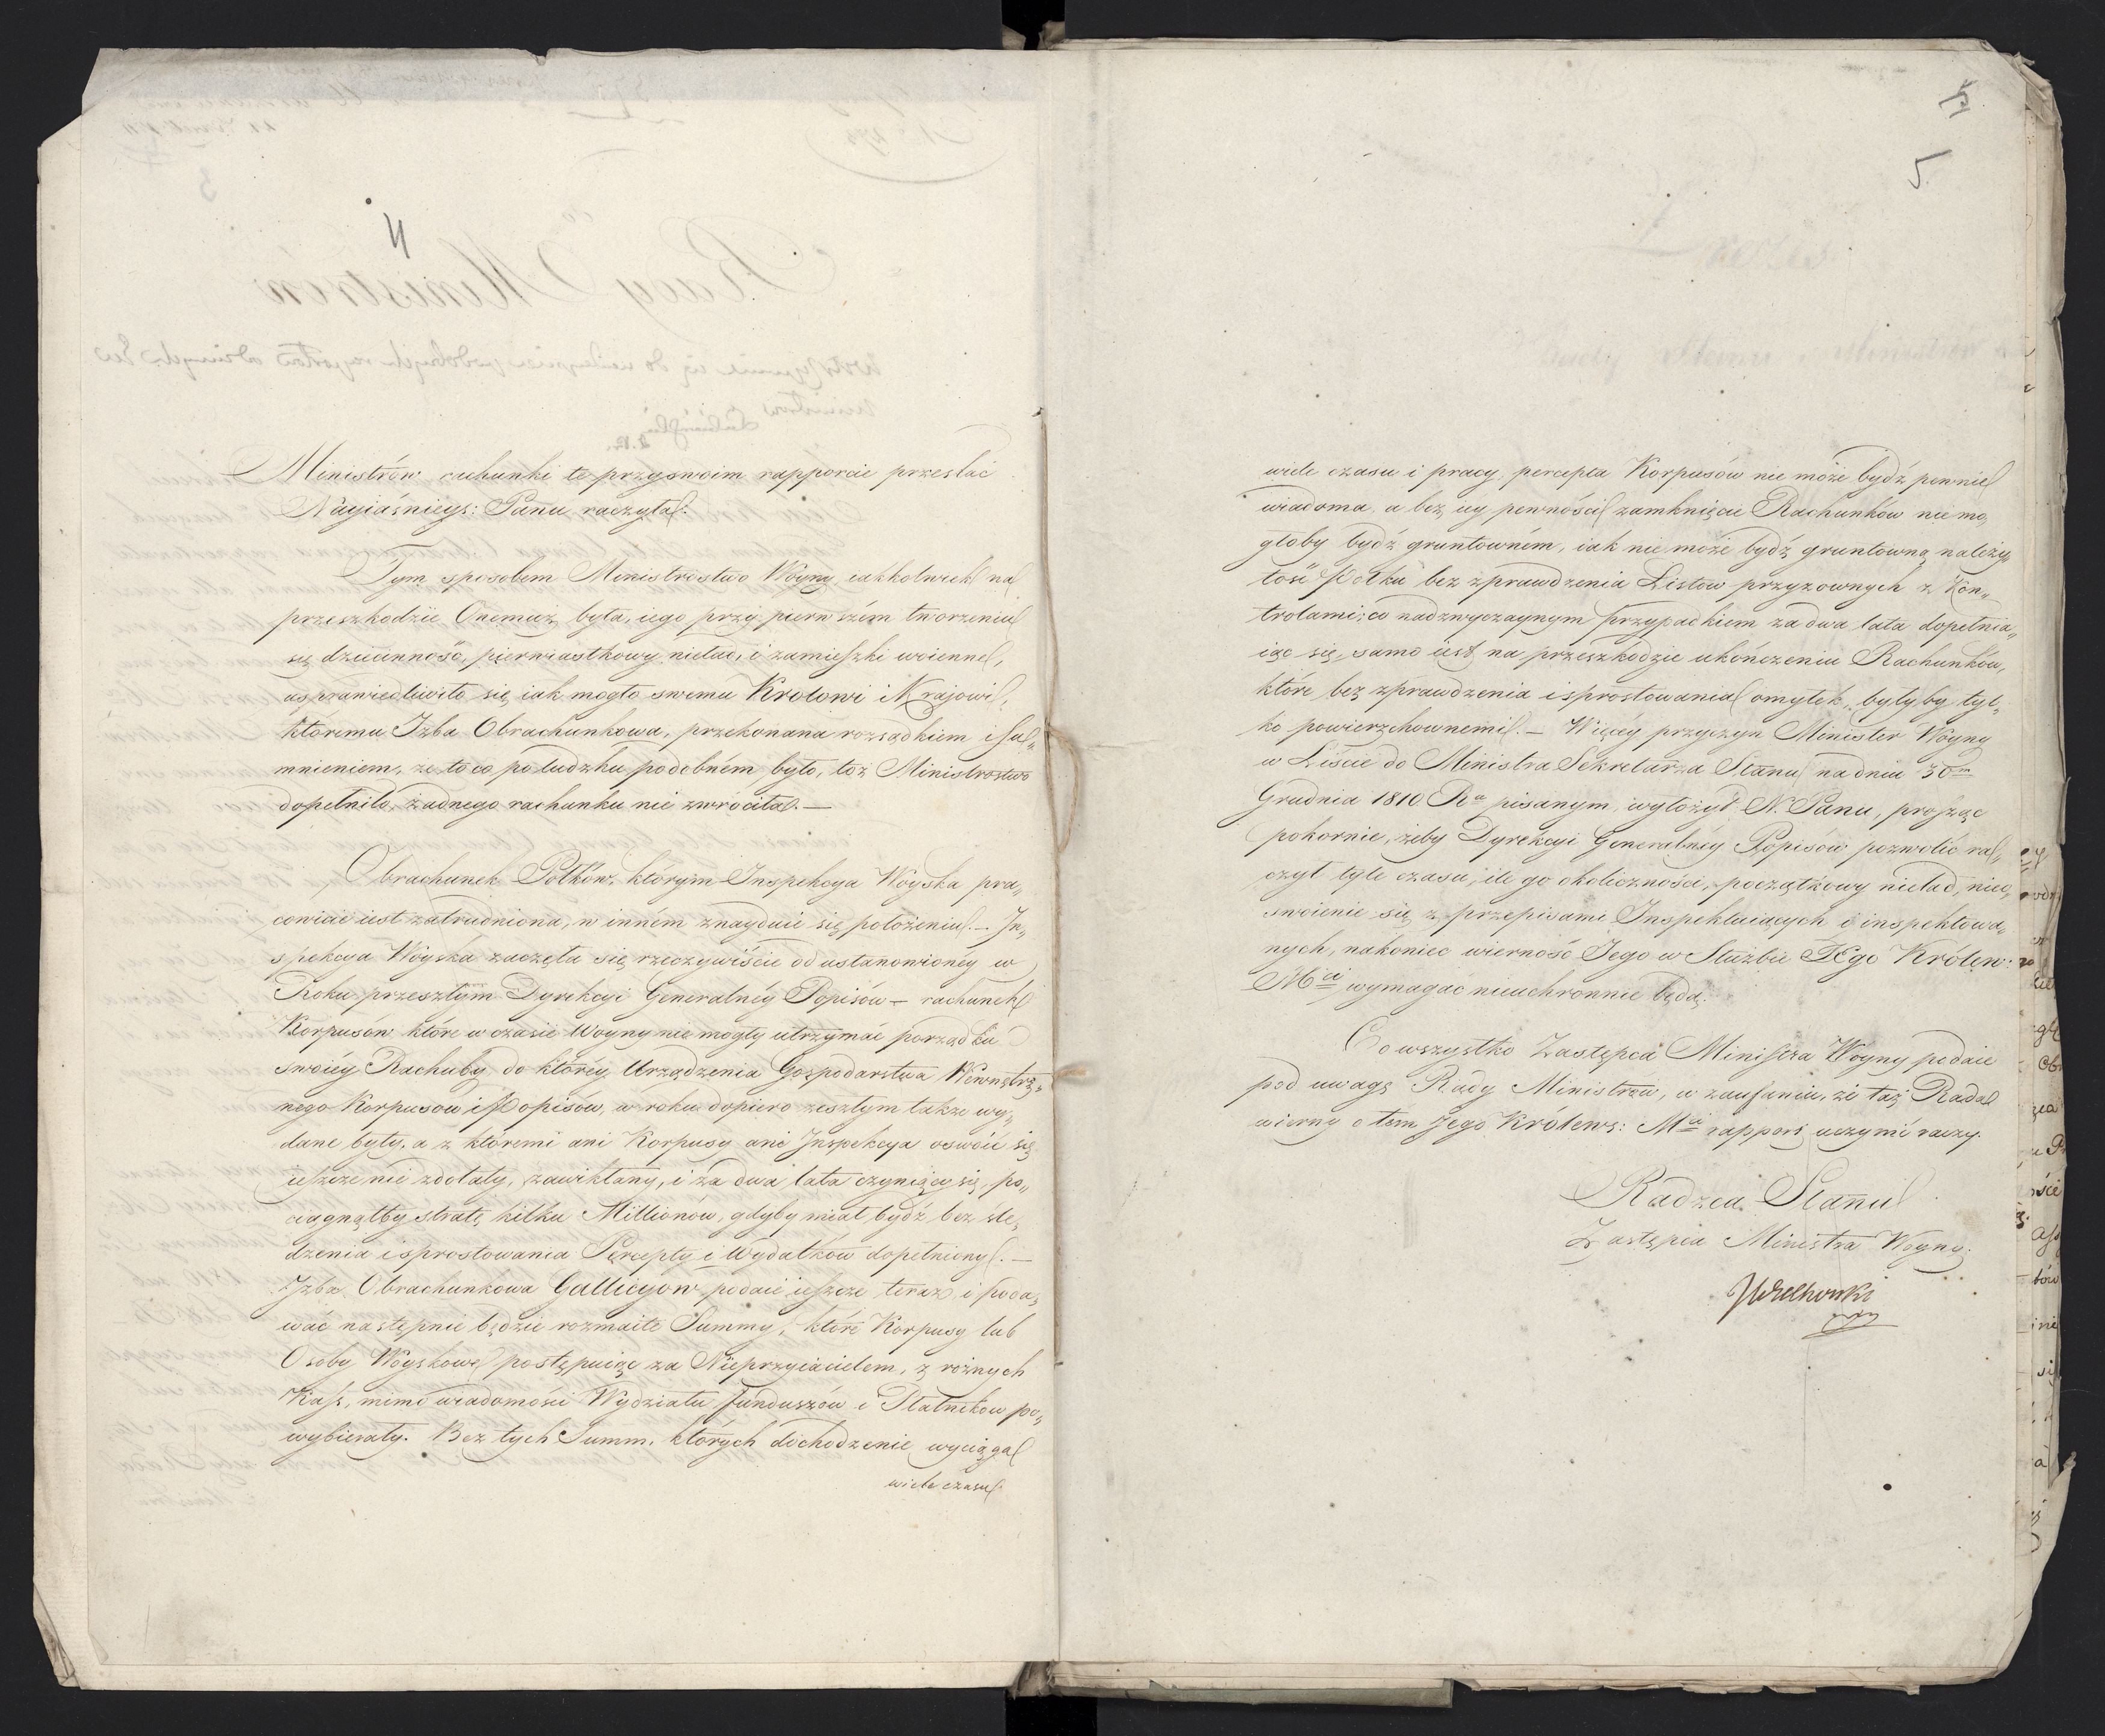 4
Ministrów rachunki te przy swoim rapporcie przesłać
Nayiaśnieys: Panu raczyła.
Tym sposobem Ministerstwo Woyny, iakkolwiek na
przeszkodzie Onemuż była, iego przy pierwszém tworzeniu
się dziecinność, pierwiastkowy nieład, i zamieszki woienne,
usprawiedliwiło się iak mogło swemu Krolowi i Kraiowi,
ktoremu Izba Obrachunkowa, przekonana rozsądkiem i su„
mnieniem, że to co po ludzku podobném było, toż Ministerstwo
dopełniło, żadnego rachunku nie zwróciła. —
Obrachunek Połków, którym Inspekcya Woyska pra„
cowicie iest zatrudniona, w inném znayduie się położeniu. — In„
spekcya Woyska zaczęła się rzeczywiście od ustanowioney w
Roku przeszłym Dyrekcyi Generalnéy Popisów — rachunek
Korpusów które w czasie Woyny nie mogły utrzymać porządku
swoiéy Rachuby, do któréy Urządzenia Gospodarstwa Wewnętrz„
nego Korpusow i Popisów, w roku dopiero zeszłym także wy„
dane były, a z któremi ani Korpusy ani Inspekcya oswoić się
ieszcze nie zdołały, zawikłany, i za dwa lata czyniący się, po„
ciągnąłby stratę kilku Millionów, gdyby miał bydź bez śle„
dzenia i sprostowania Percepty i Wydatków dopełniony. —
Izba Obrachunkowa Gallicyow. podaie ieszcze teraz i poda„
wać następnie będzie rozmaite Summy, które Korpusy lub
Osoby Woyskowe postępuiąc za Nieprzyiacielem, z rożnych
Kass, mimo wiadomości Wydziału funduszów i Płatników po„
wybierały. Bez tych Summ, których dochodzenie wyciąga
wiele czasu
5
wiele czasu i pracy, percepta Korpusów nie może bydź pewnie
wiadoma, a bez iey pewności zamknięcie Rachunkow nie mo„
głoby bydź gruntowném, iak nie może bydź gruntowną należy„
tość Połku bez zprawdzenia Listow przyzownych z Kon„
trolami; co nadzwyczaynym przypadkiem za dwa lata dopełnia„
iąc się, samo iest na przeszkodzie ukończeniu Rachunków,
które bez zprawdzenia i sprostowania omyłek, byłyby tyl„
ko powierzchownemi. — Więcéy przyczyn Minister Woyny
w Liście do Ministra Sekretarza Stanu na dniu 30m
Grudnia 1810 Ru pisanym, wyłożył N. Panu, prosząc
pokornie, żeby Dyrekcyi Generalnéy Popisów pozwolić ra„
czył tyle czasu, ile go okoliczności, początkowy nieład, nieo„
swoienie się z przepisami Inspektuiących i inspektowa„
nych, nakoniec wierność Jego w Służbie JEgo Królew:
Mci wymagać nieuchronnie będą.
Co wszystko Zastępca Ministra Woyny podaie
pod uwagę Rady Ministrów, w zaufaniu, że taż Rada
wierny o tem Jego Królews: Mci rapport uczynić raczy.
Radzca Stanu
Zastępca Ministra Woyny.
JWielhorski